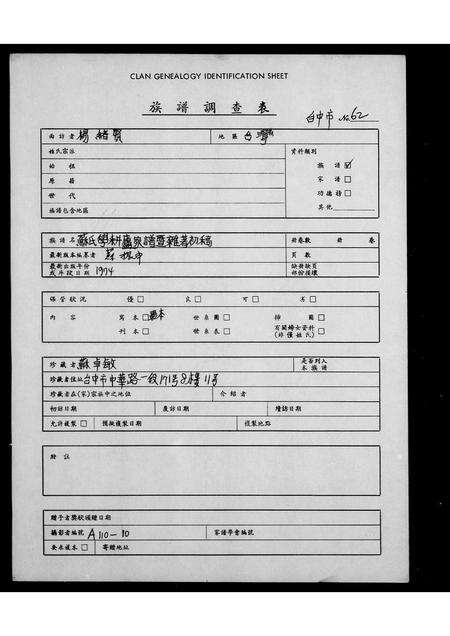 CLAN GENEALOGY IDENTIFICATION SHEET
族譜調查表
台中市 No 62
面訪者 楊緒賢 地區 台灣
姓氏宗派 資料類別
始祖 族譜 ☑
原籍 家譜 □
世代 功德榜 □
族譜包含地區 其他
族譜名 蘇氏學耕盧家譜暨雜著初稿 冊卷數 冊 卷
最新版本編纂者 蘇 頁數
最新出版年份或年段日期 1974 缺冊缺頁部份損壞
保管狀況 優 □ 良 □ 可 □ 劣 □
內容 寫本 □ 世系圖 □ 排圖 □
刊本 □ 世系表 □ 有關婦女資料(非僅姓氏) □
珍藏者 蘇卓敏 是否列入本族譜
珍藏者住址 台中市中華路一段171号8樓11号
珍藏者在(家)宗族中之地位 介紹者
初訪日期 復訪日期 續訪日期
允許複製 □ 預擬複製日期 複製地點
附註
贈予者獎狀頒贈日期
攝影者編號 A110-10 家譜學會編號
要求複本 □ 寄贈地址